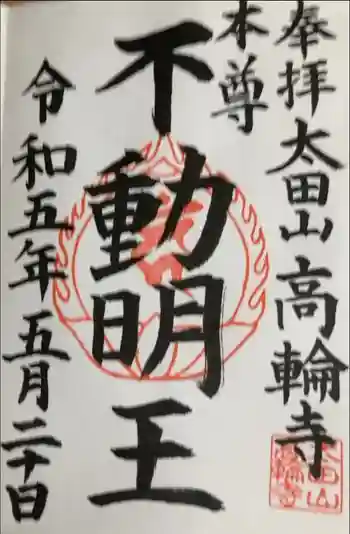 奉拝 太田山 高輪寺
本尊
不動明王
令和五年 五月 二十日
太田山
高輪寺